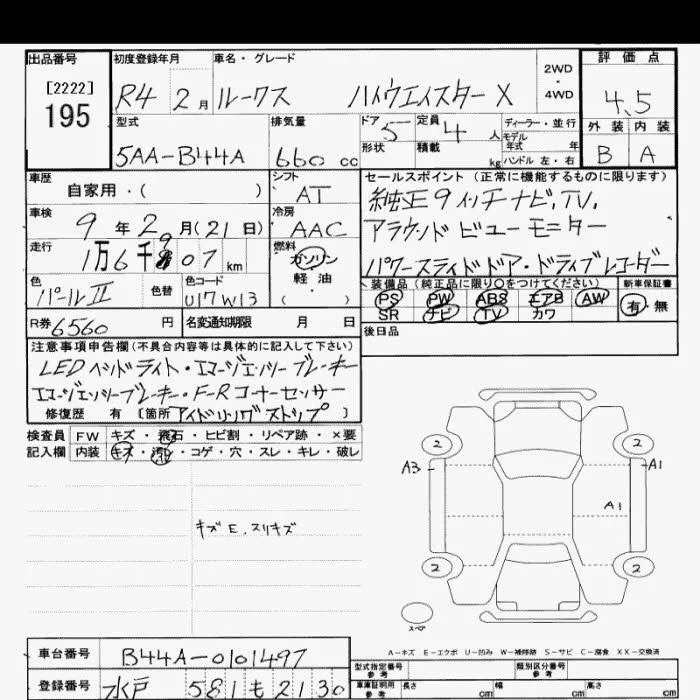 出品番号
[2222]
195
初度登録年月
R4 2月
車名・グレード
ルークス ハイウェイスター X
2WD
・
4WD
評価点
4.5
外装 内装
B A
型式
5AA-B44A
排気量
660 cc
ドア 5
形状
定員 4 人
積載 kg
ディーラー・並行
モデル年式 年
ハンドル 左・右
車歴
自家用・( )
シフト
AT
車検
9年2月(21日)
冷房
AAC
走行
1万6千 907 km
燃料
ガソリン
・
軽油
( )
色
パールII
色替
色コード
U17W13
R券 6560 円
名変通知期限 月 日
セールスポイント(正常に機能するものに限ります)
純正9インチナビ.TV.
アラウンドビューモニター
パワースライドドア・ドライブレコーダー
装備品(純正品に限り○をつけてください)
PS PW ABS エアB AW
SR ナビ TV カワ
新車保証書
有・無
後日品
注意事項申告欄(不具合内容等は具体的に記入して下さい)
LEDヘッドライト・エマージェンシーブレーキ
エマージェンシーブレーキ・F-Rコーナーセンサー
修復歴 有[箇所 アイドリングストップ]
検査員記入欄
FW キズ・飛石・ヒビ割・リペア跡・×要
内装 キズ・汚レ・コゲ・穴・スレ・キレ・破レ
キズE.スリキズ
2 2
A3 A1
A1
2 2
スペア
A-キズ E-エクボ U-凹み W-補修跡 S-サビ C-腐食 XX-交換済
車台番号
B44A-0101497
登録番号
水戸 581 も 2130
型式指定番号
参考
類別区分番号
参考
車庫証明用
参考
長さ cm 幅 cm 高さ cm